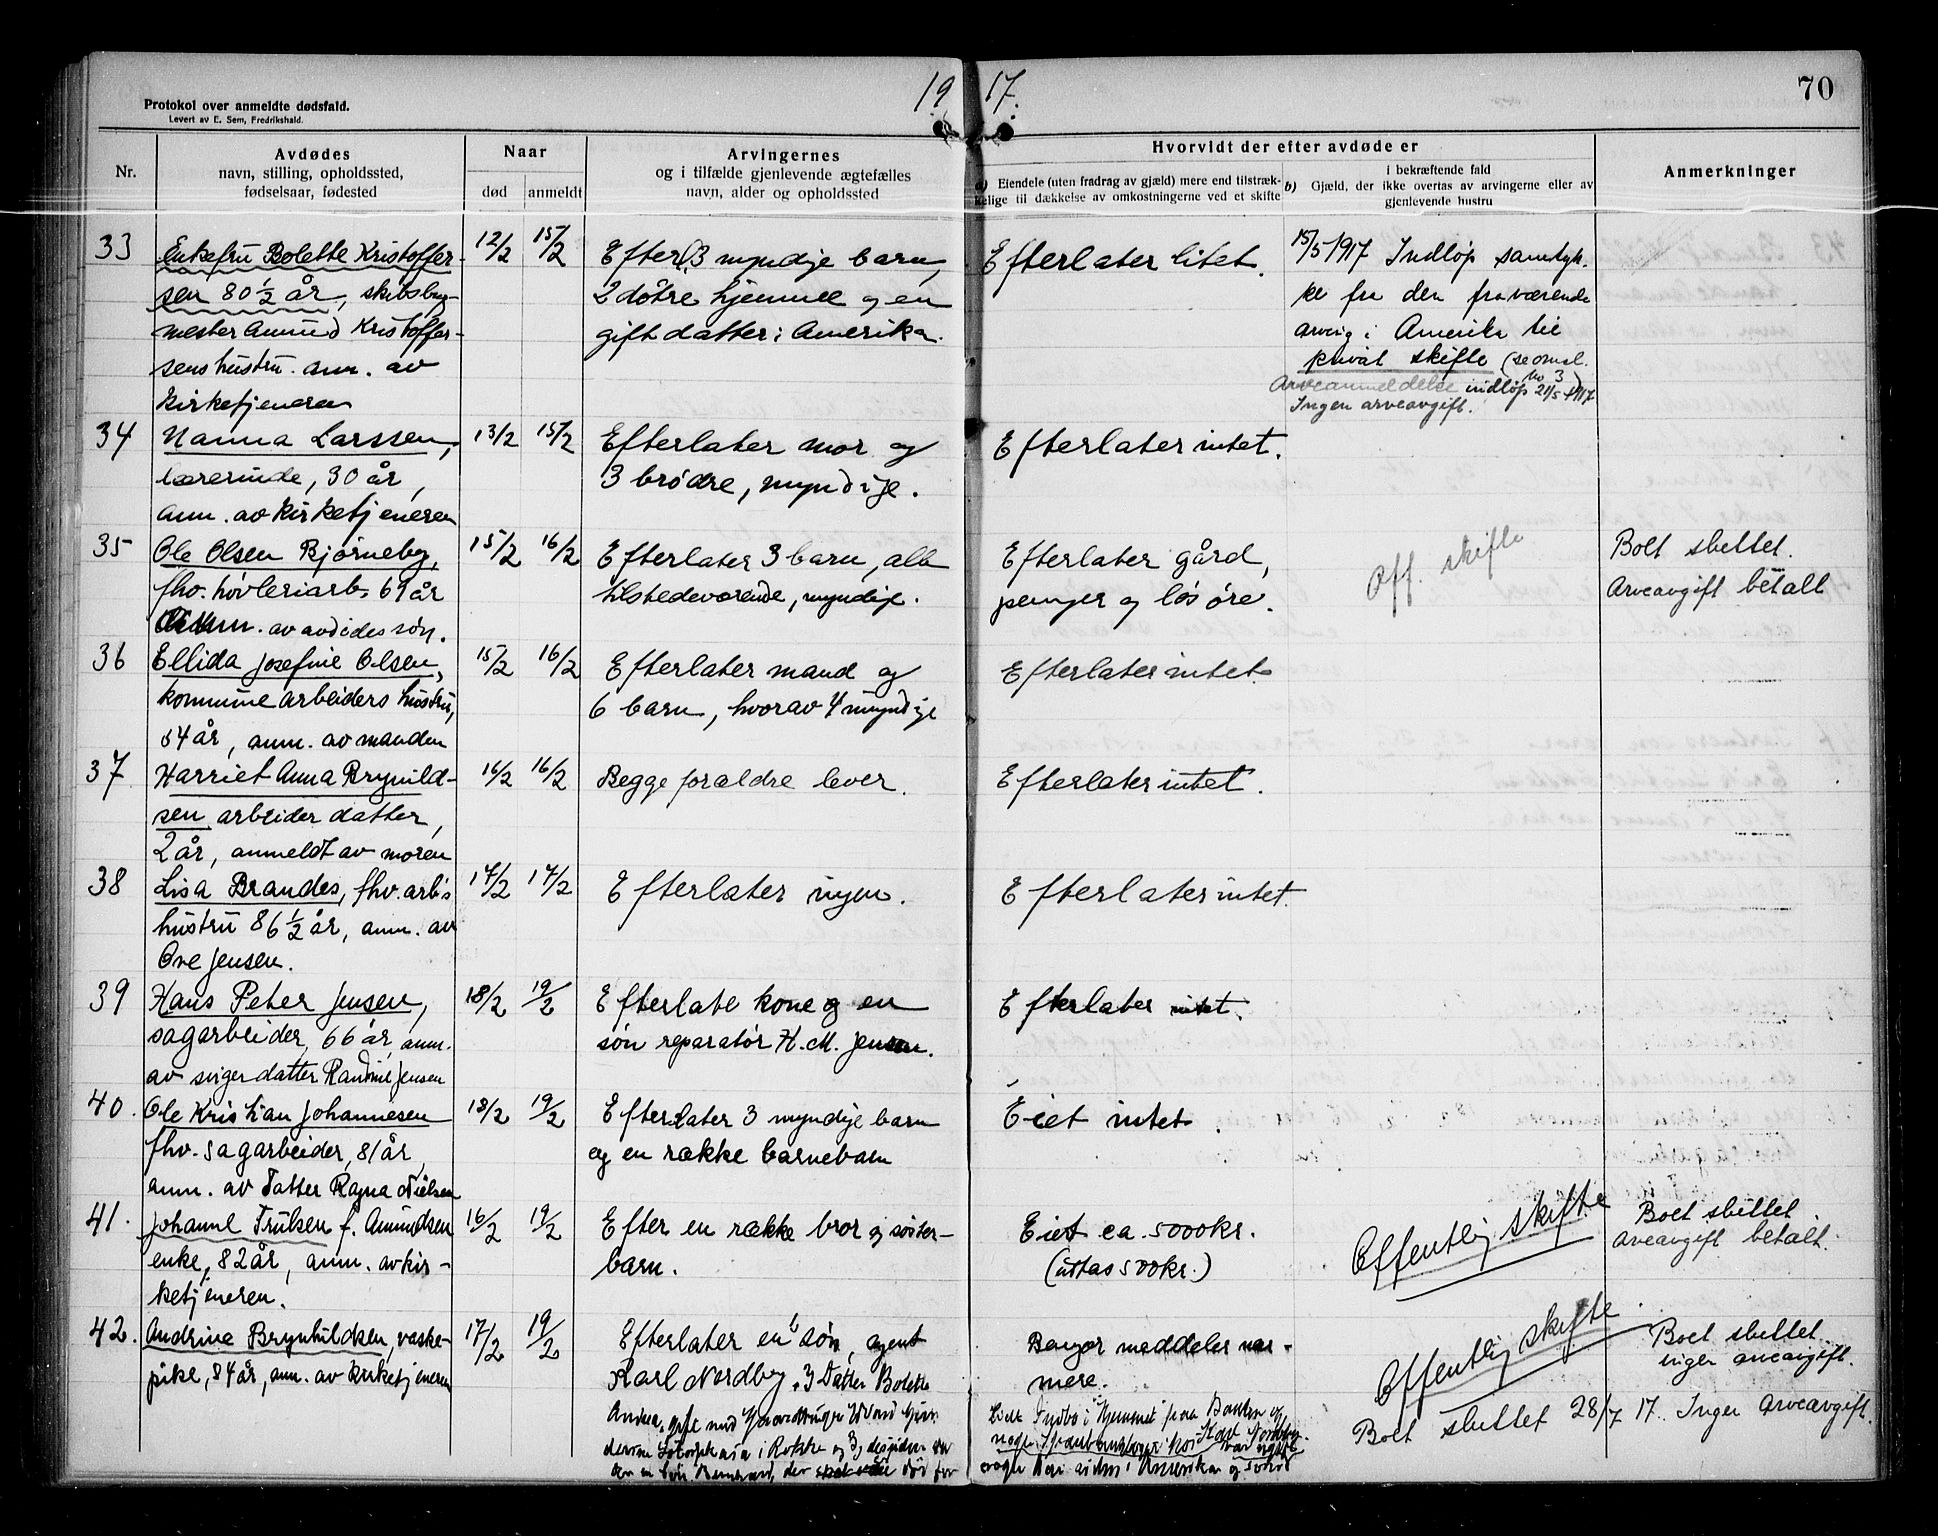 Protokol over anmeldte dødsfald.
Levert av E. Sem, Fredrikshald.
19 17.
70
Nr.
Avdødes
navn, stilling, opholdssted,
fødselsaar, fødested
Naar
død
anmeldt
Arvingernes
og i tilfælde gjenlevende ægtefælles
navn, alder og opholdssted
Hvorvidt der efter avdøde er
a) Eiendele (uten fradrag av gjæld) mere end tilstræk-
kelige til dækkelse av omkostningerne ved et skifte
i bekræftende fald
b) Gjæld, der ikke overtas av arvingerne eller av
gjenlevende hustru
Anmerkninger
33
Enkefru Bolette Kristoffer-
sen 80 1/2 år, skibsbyg-
mester Amund Kristoffer-
sens hustru. anm. av
kirketjeneren
12/2
15/2
Efter 3 myndige barn,
2 døtre hjemme og en
gift datter i Amerika.
Efterlater litet.
15/5 1917 Indløp samtyk-
ke fra den fraværende
arving i Amerika til
privat skifte (se omsl.
No 3)
Arveanmeldelse indløp 21/5 1917
Ingen arveavgift.
34
Nanna Larssen,
lærerinde, 30 år,
anm. av kirketjeneren
13/2
15/2
Efterlater mor og
3 brødre, myndige.
Efterlater intet.
35
Ole Olsen Bjørneby,
fhv. høvleriarb. 69 år
anm. av avdødes søn.
15/2
16/2
Efterlater 3 barn, alle
tilstedeværende, myndige.
Efterlater gård,
penger og løsøre.
Off. skifte
Boet sluttet.
Arveavgift betalt
36
Ellida Josefine Olsen,
kommunearbeiders hustru,
54 år, anm. av manden
15/2
16/2
Efterlater mand og
6 barn, hvorav 4 myndige
Efterlater intet.
37.
Harriet Anna Brynild-
sen arbeider datter,
2 år, anmeldt av moren
16/2
16/2
Begge forældre lever.
Efterlater intet.
38
Lisa Brandes, fhv. arb's
hustru 86 1/2 år, anm. av
Ove Jensen.
17/2
17/2
Efterlater ingen.
Efterlater intet.
39
Hans Peter Jensen,
sagarbeider, 66 år, anm.
av svigerdatter Randine Jensen
18/2
19/2
Efterlate kone og en
søn reparatør H. M. Jensen.
Efterlater intet.
40.
Ole Kristian Johannesen
fhv. sagarbeider, 81 år,
anm. av datter Ragna Nielsen
18/2
19/2
Efterlater 3 myndige barn
og en række barnebarn
Eiet intet.
41.
Johanne Trulsen f. Amundsen
enke, 82 år, anm. av kir-
ketjeneren.
16/2
19/2
Efter en række bror og søster-
barn.
Eiet ca. 5000 kr.
(uttas 500 kr.)
Offentlig skifte
Boet sluttet
arveavgift betalt.
42.
Andrine Brynhildsen, vaske-
pike, 84 år, anm. av kirketjeneren
17/2
19/2
Efterlater en søn, agent
Karl Nordby, 3 Datter Bolette
Andrea, gift med
i Rokke og 3,
søn der død før
Borgor meddeler nær-
mere.
Lidt Indbo i Hjemmet paa Banken og
nogle hos Karl Nordby.
var ugift
i Amerika og
Offentlig skifte.
Boet sluttet.
ingen arveavgift.
Boet sluttet 28/7 17. Ingen Arveavgift.